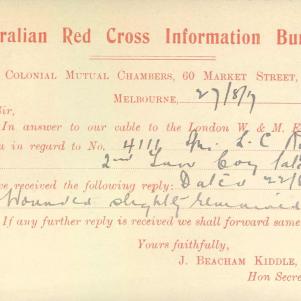 ralian Red Cross Information Bu
COLONIAL MUTUAL CHAMBERS, 60 MARKET STREET,
MELBOURNE, 27/8/17
ir,
In answer to our cable to the London W & M. E
u in regard to No. 4111
2nd Coy
we received the following reply: Dated 22/
Wounded slightly remained
If any further reply is received we shall forward same
Yours faithfully,
J. BEACHAM KIDDLE,
Hon Secre